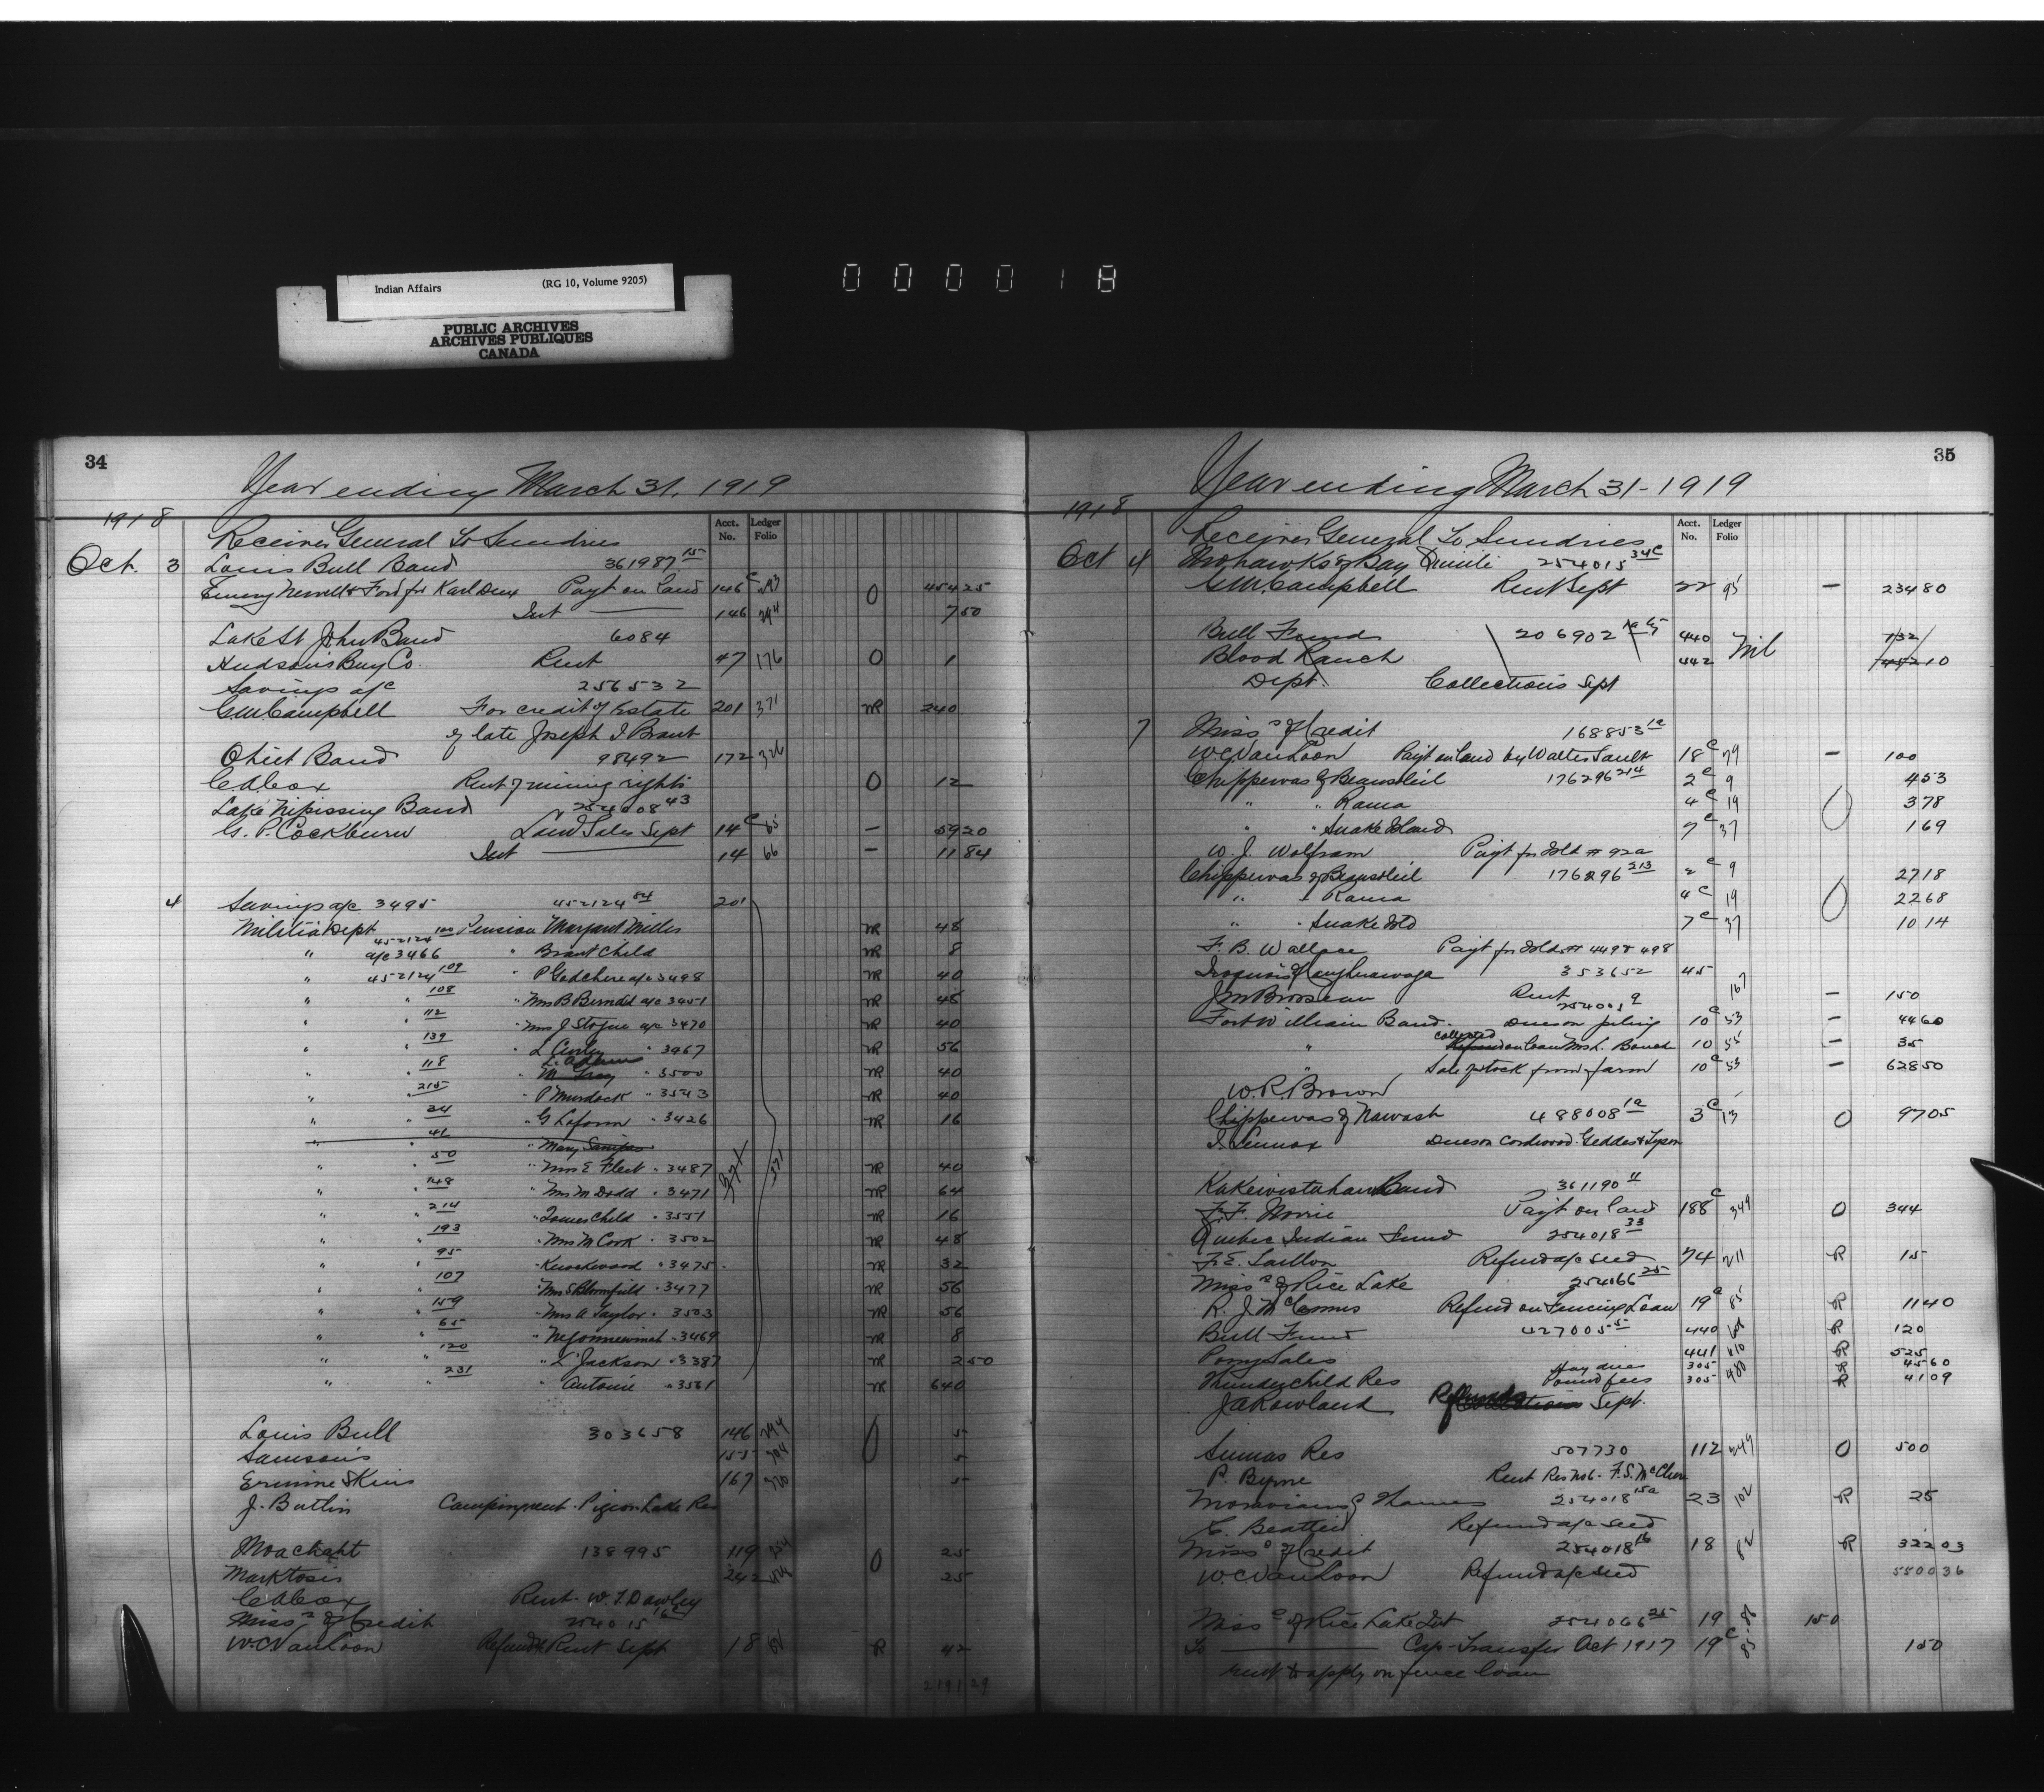 Indian Affairs (RG 10, Volume 9205)
PUBLIC ARCHIVES
ARCHIVES PUBLIQUES
CANADA
000018
34
Year ending March 31, 1919
1918
Acct. No. Ledger Folio
Receiver General To Sundries
Oct. 3 Louis Bull Band 361987 15
Emery Newell & Ford for Karl Pay't on land 146 c 293 0 454 25
Int 146 294 7 50
Lake St John Band 6084
Hudson's Bay Co. Rent 47 176 0 1
Savings a/c 256532
G.W. Campbell For credit of Estate 201 371 NR 240
of late Joseph I Brant
Band 98492 172 326
C A Cox Rent of mining rights 0 12
Lake Nipissing Band 254008 43
G. P. Cockburn Land Sales Sept 14 c 65 – 59 20
Int 14 66 – 11 84
4 Savings a/c 3495 452124 84 201
Militia Dept Pension Margaret Miller NR 48
" 452124 100 a/c 3466 " Brant Child NR 8
" 452124 109 " P Godchere a/c 3498 NR 40
" " 108 " Mrs B Bernard a/c 3451 NR 48
" " 112 " Mrs J Stogua a/c 3470 NR 40
" " 139 " L " 3467 NR 56
" " 118 " " 3500 NR 40
" " 215 " P Murdock " 3543 NR 40
" " 34 " G Laform " 3426 NR 16
" " 41 " Mary
" " 50 " Mrs E Fleet " 3487 NR 40
" " 148 " Mrs M Dodd " 3471 NR 64
" " 214 " James Child " 3551 NR 16
" " 193 " Mrs M Cook " 3502 NR 48
" " 95 " Knockwood " 3475 NR 32
" " 107 " Mrs S Bloomfield " 3477 NR 56
" " 159 " Mrs A Taylor " 3503 NR 56
" " 65 " " 3469 NR 8
" " 120 " L Jackson " 3387 NR 250
" " 231 " Antoine " 3561 NR 640
371
Louis Bull 303658 146 294 0 5
Samson's 155 304 5
Ermine Skins 167 320 5
J. Butlin Camping rent. Pigeon Lake Res
Moachaht 138995 119 254 0 25
Marktosis 242 25
C A Cox Rent. W. T Dawley
Miss a of Credit 254015 16
W.C. VanLoon Refund & Rent Sept 18 R 42
2191 29
35
Year ending March 31 - 1919
1918
Acct. No. Ledger Folio
Receiver General To Sundries
Oct 4 Mohawks of Bay Quinte 254015 34c
G.W. Campbell Rent Sept 22 95 – 234 80
Bull Fund 206902 440 Nil 132
Blood Ranch 442 452 10
Dept. Collections Sept
7 Miss a of Credit 168853 1a
W.C. VanLoon Pay't on land by Walter Sault 18 c 79 – 100
Chippewas of Beausoleil 176296 214 2 c 9 4 53
" " Rama 4 c 19 0 3 78
" " Snake Island 7 c 37 1 69
W. J. Wolfram Pay't for Isld # 92a
Chippewas of Beausoleil 176296 213 2 c 9 27 18
" " Rama 4 c 19 0 22 68
" " Snake Isld 7 c 37 10 14
F. B. Wallace Pay't for Isld #
Iroquois of Caughnawaga 353652 45
J M Brosseau Rent 167 – 150
Fort William Band. 254001 9 Dues on piling 10 c 53 – 44 60
" collected on loan Mrs L. 10 55 – 35
" Sale of stock from farm 10 c 53 – 628 50
W. R. Brown
Chippewas of Nawash 488008 1a 3 c 13 0 97 05
I. Lennox Dues on Cordwood. Geddes & Tyson
Kakewistahaw Band 361190 11
F. F. Pay't on land 188 c 349 0 344
Quebec Indian Fund 254018 33
F. E. Refund a/c seed 74 211 R 15
Miss a of Rice Lake 254066 25
R. J. McCamus Refund on Fencing Loan 19 c 85 R 11 40
Bull Fund 427005 5 440 R 120
Pony Sales 441 610 R 525
Thunderchild Res Hay dues 305 480 R 45 60
Pound fees 305 R 41 09
J A Rowland Sept.
Sumas Res 507730 112 249 0 500
P. Byrne Rent Res No 6. F. S. McClure
Moravians of Thames 254018 15a 23 102 R 25
E. Beattie Refund a/c seed
Miss a of Credit 254018 16 18 82 R 322 03
W.C. VanLoon Refund a/c seed
5500 36
Miss a of Rice Lake Int 254066 25 19 86 150
To Cap - Transfer Oct 1917 19 c 85 150
rent to apply on fence loan